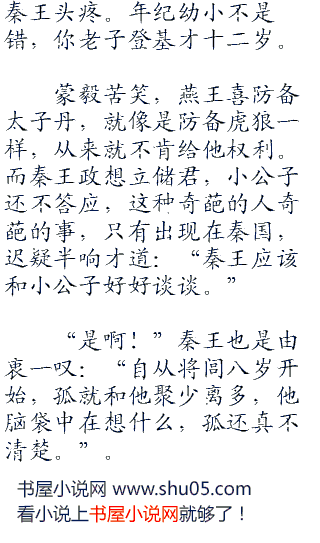 秦王头疼。年纪幼小不是
错，你老子登基才十二岁。
蒙毅苦笑，燕王喜防备
太子丹，就像是防备虎狼一
样，从来就不肯给他权利。
而秦王政想立储君，小公子
还不答应，这种奇葩的人奇
葩的事，只有出现在秦国，
迟疑半响才道：“秦王应该
和小公子好好谈谈。”
“是啊！”秦王也是由
衷一叹：“自从将闾八岁开
始，孤就和他聚少离多，他
脑袋中在想什么，孤还真不
清楚。”。
书屋小说网 www.shu05.com
看小说上书屋小说网就够了！